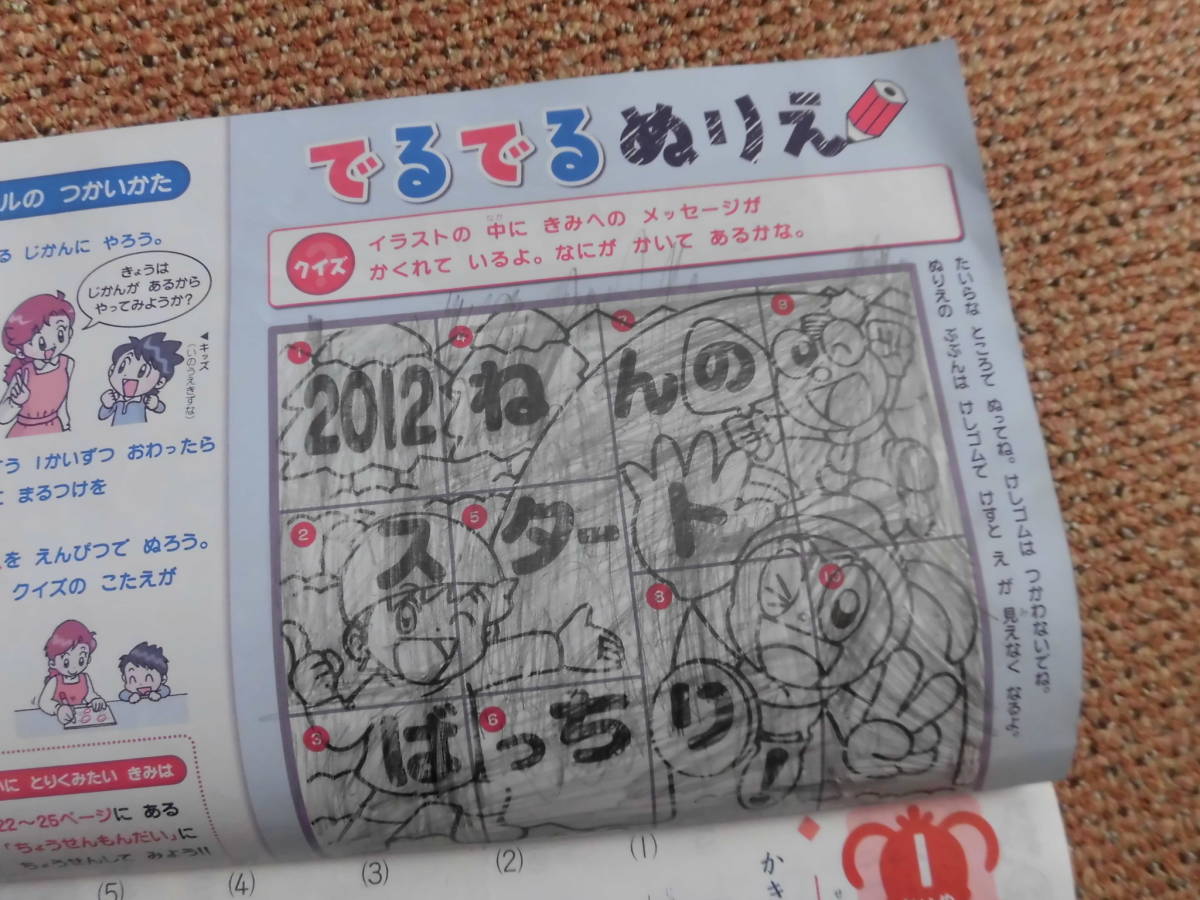 でるでるぬりえ
クイズ
イラストの 中に きみへの メッセージが
なか
かくれて いるよ。なにが かいて あるかな。
たいらな ところで ぬってね。けしゴムは つかわないでね。
ぬりえの ぶぶんは けしゴムで けすと え が 見えなく なるよ。
み
1
4
7
9
2012ねんの
2
5
スタート
3
6
8
10
ばっちり!
ルの つかいかた
る じかんに やろう。
きょうは
じかんが あるから
やってみようか?
◀キッズ
(いのうえきずな)
う 1かいずつ おわったら
て まるつけを
を えんぴつで ぬろう。
クイズの こたえが
に とりくみたい きみは
22〜25ページに ある
「ちょうせんもんだい」に
ちょうせんして みよう!!
(5)
(4)
(3)
(2)
(1)
かき
1